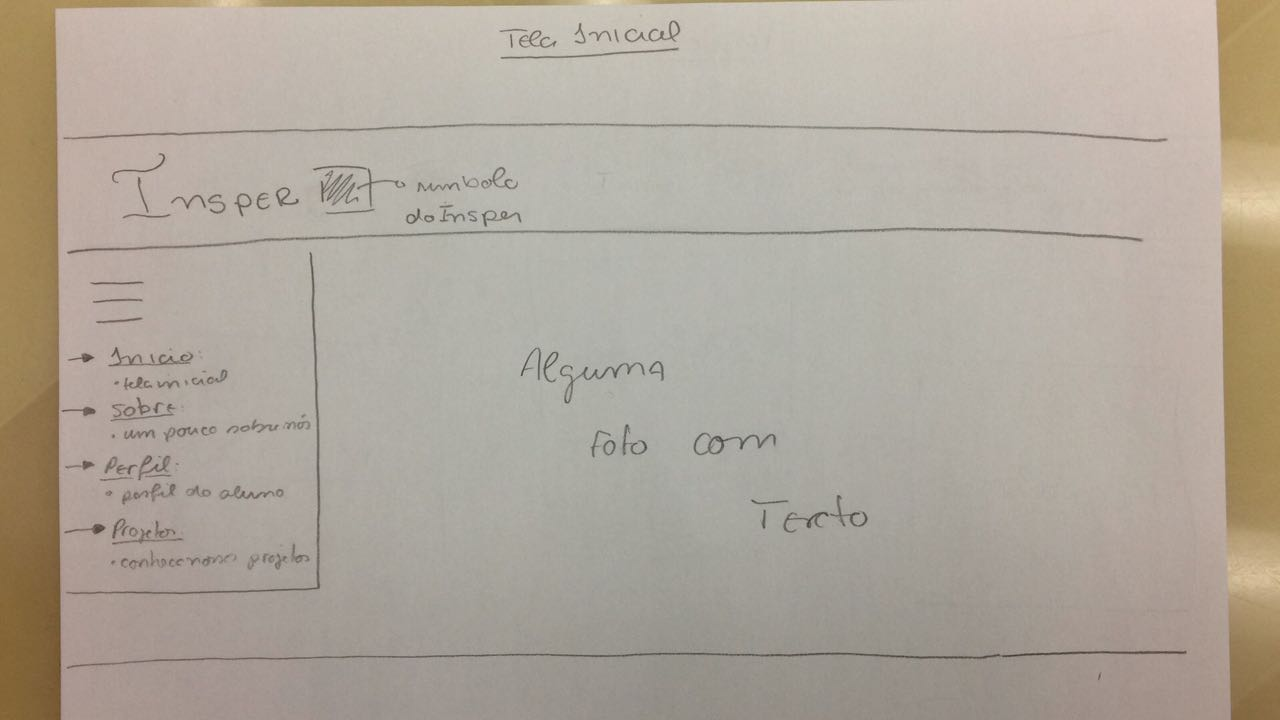 Tela Inicial
Insper
símbolo
do Insper
Inicio:
• tela inicial
Sobre:
• um pouco sobre nós
Perfil:
• perfil do aluno
Projetos:
projetos
Alguma
foto com
Texto